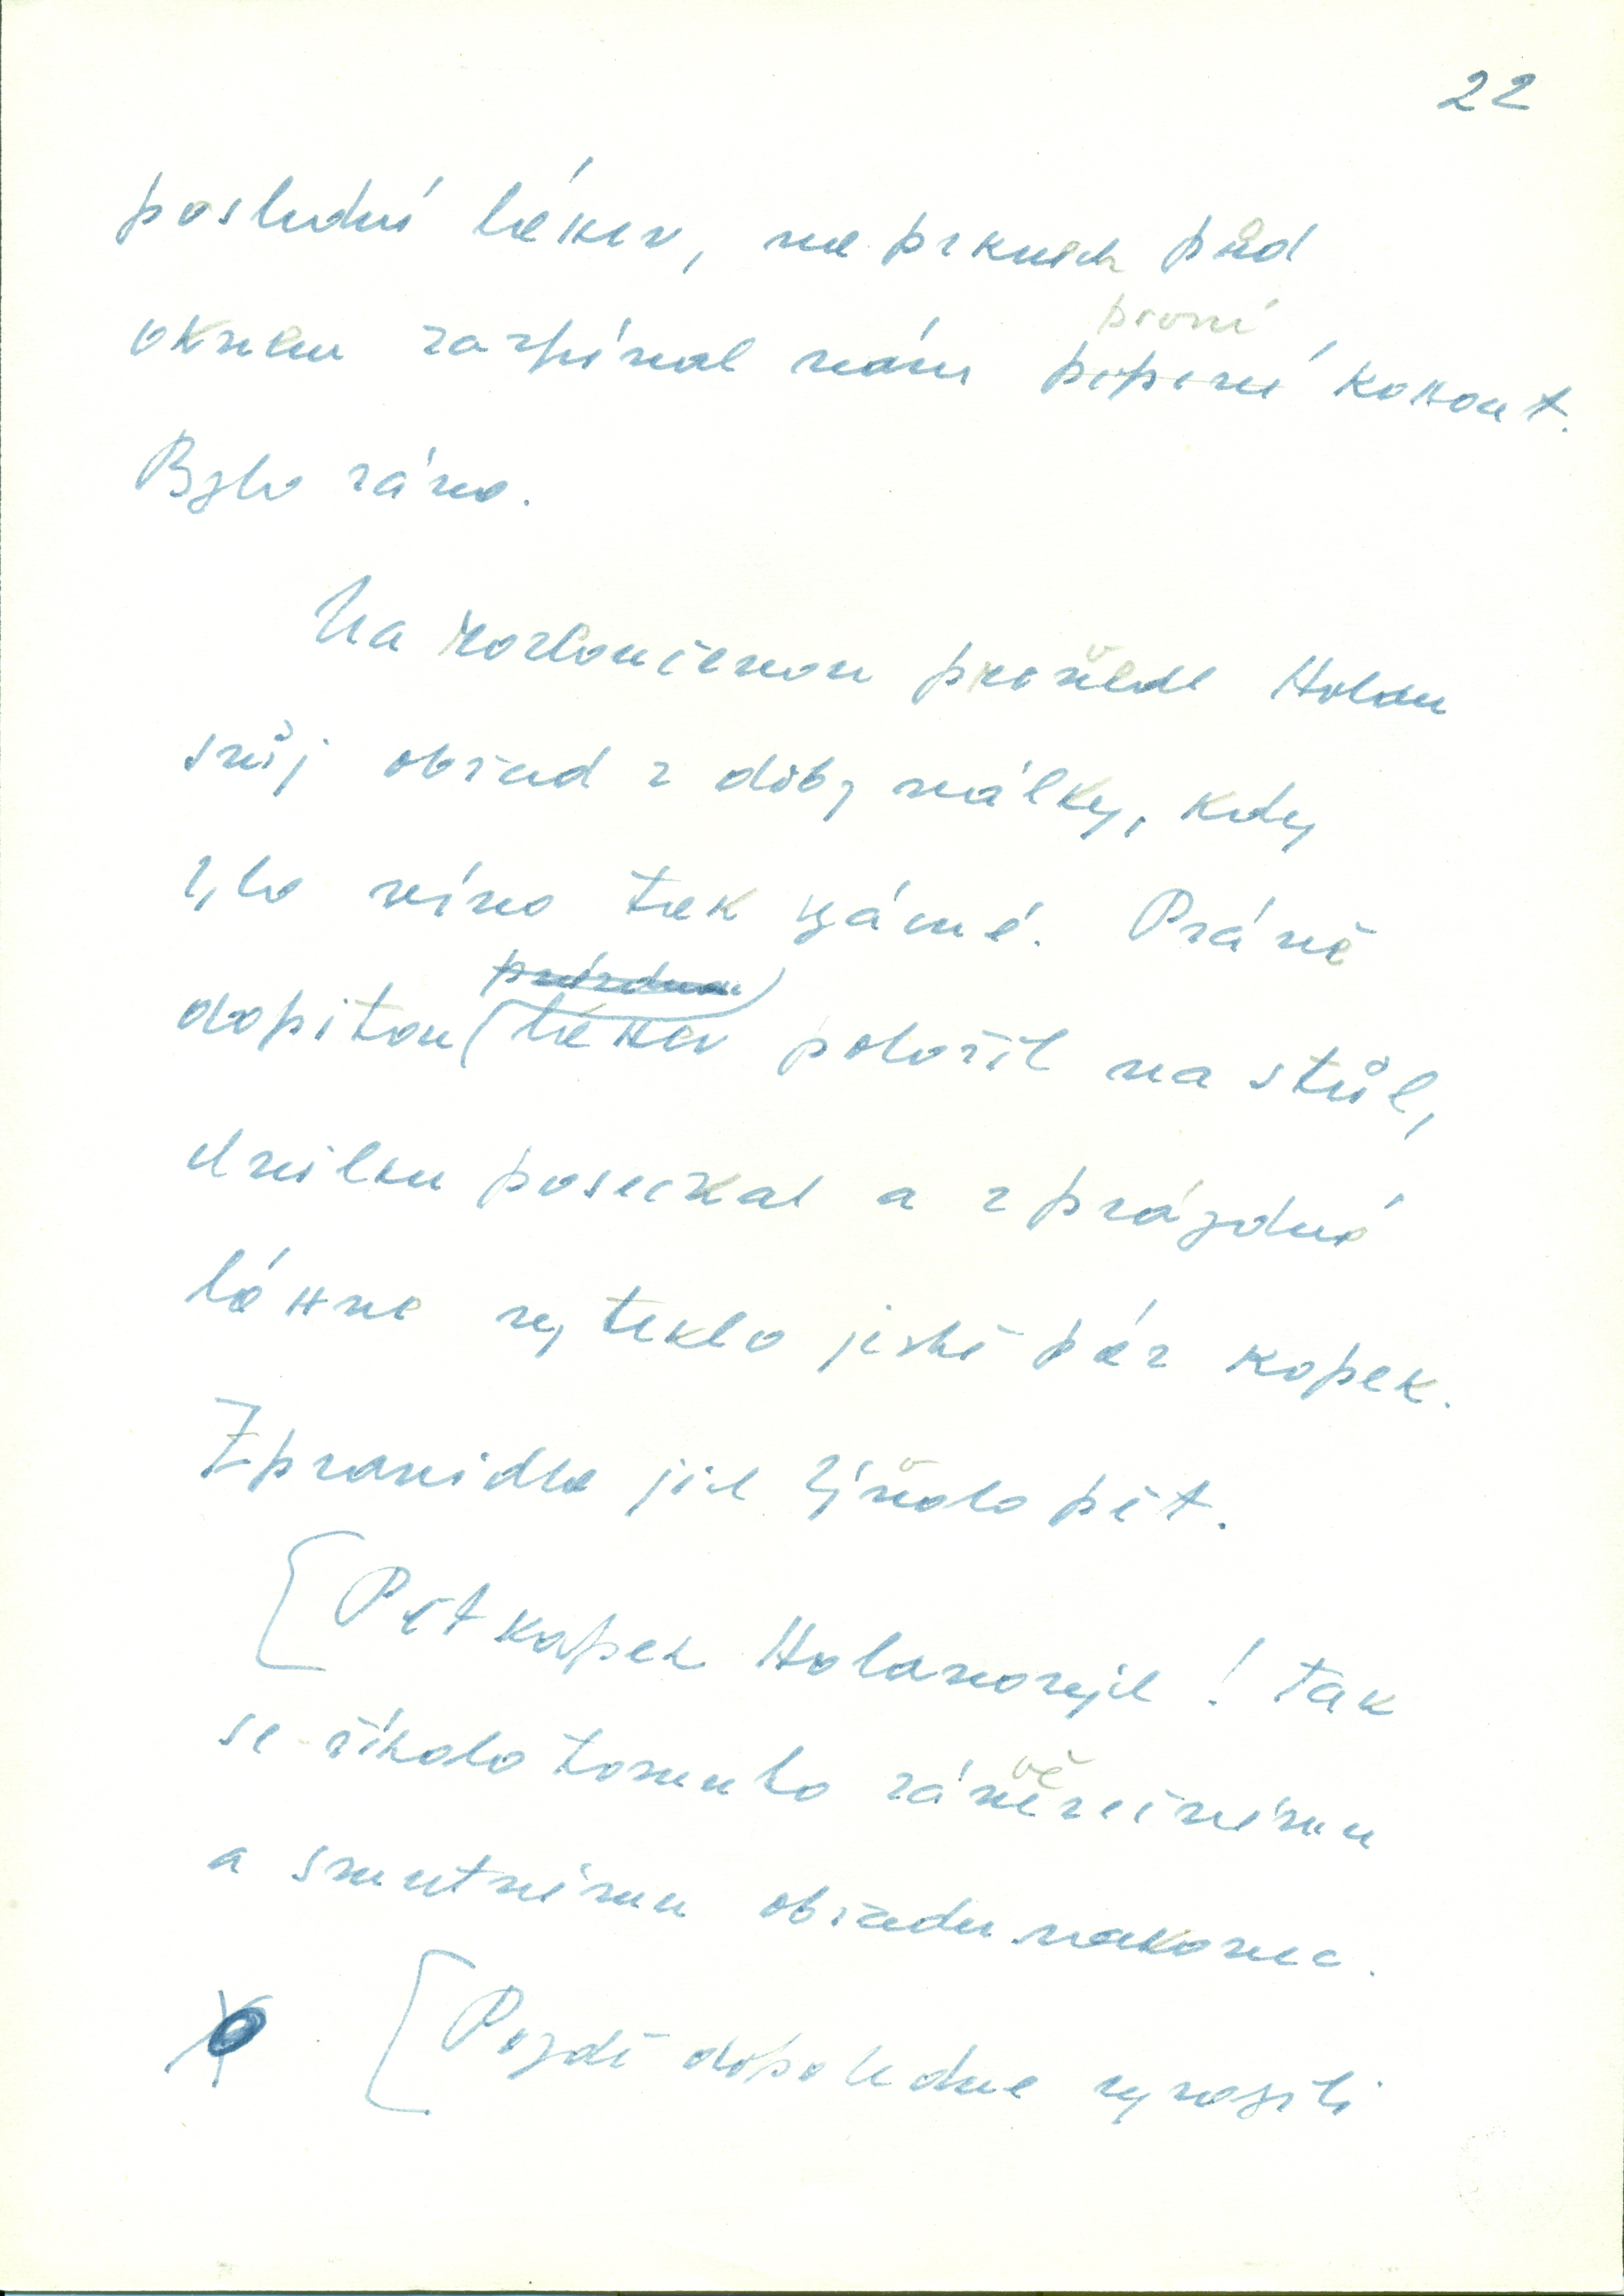 22
poslední láhev, na prknech před
oknem zazpíval nám první
kohout.
Bylo ráno.
Na rozloučenou provedl Holan
svůj obřad z doby války, kdy
bylo víno tak vzácné. Právě
prázdnou
dopitou láhev položil na stůl,
chvilku posečkal a z prázdné
láhve vyteklo ještě pár kapek.
Zpravidla jich bývalo pět.
Pět kapek Holanových! Tak
se říkalo tomuto závěrečnému
a smutnému obřadu nakonec.
Pozdě dopoledne vyrazili